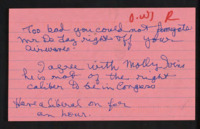 O.W.) R
Too bad you could not
Mr De Lay right off your
airwaves!
I agree with Molly Ivins
he is not of the right
caliber to be in Congress
Have a liberal on for
an hour.